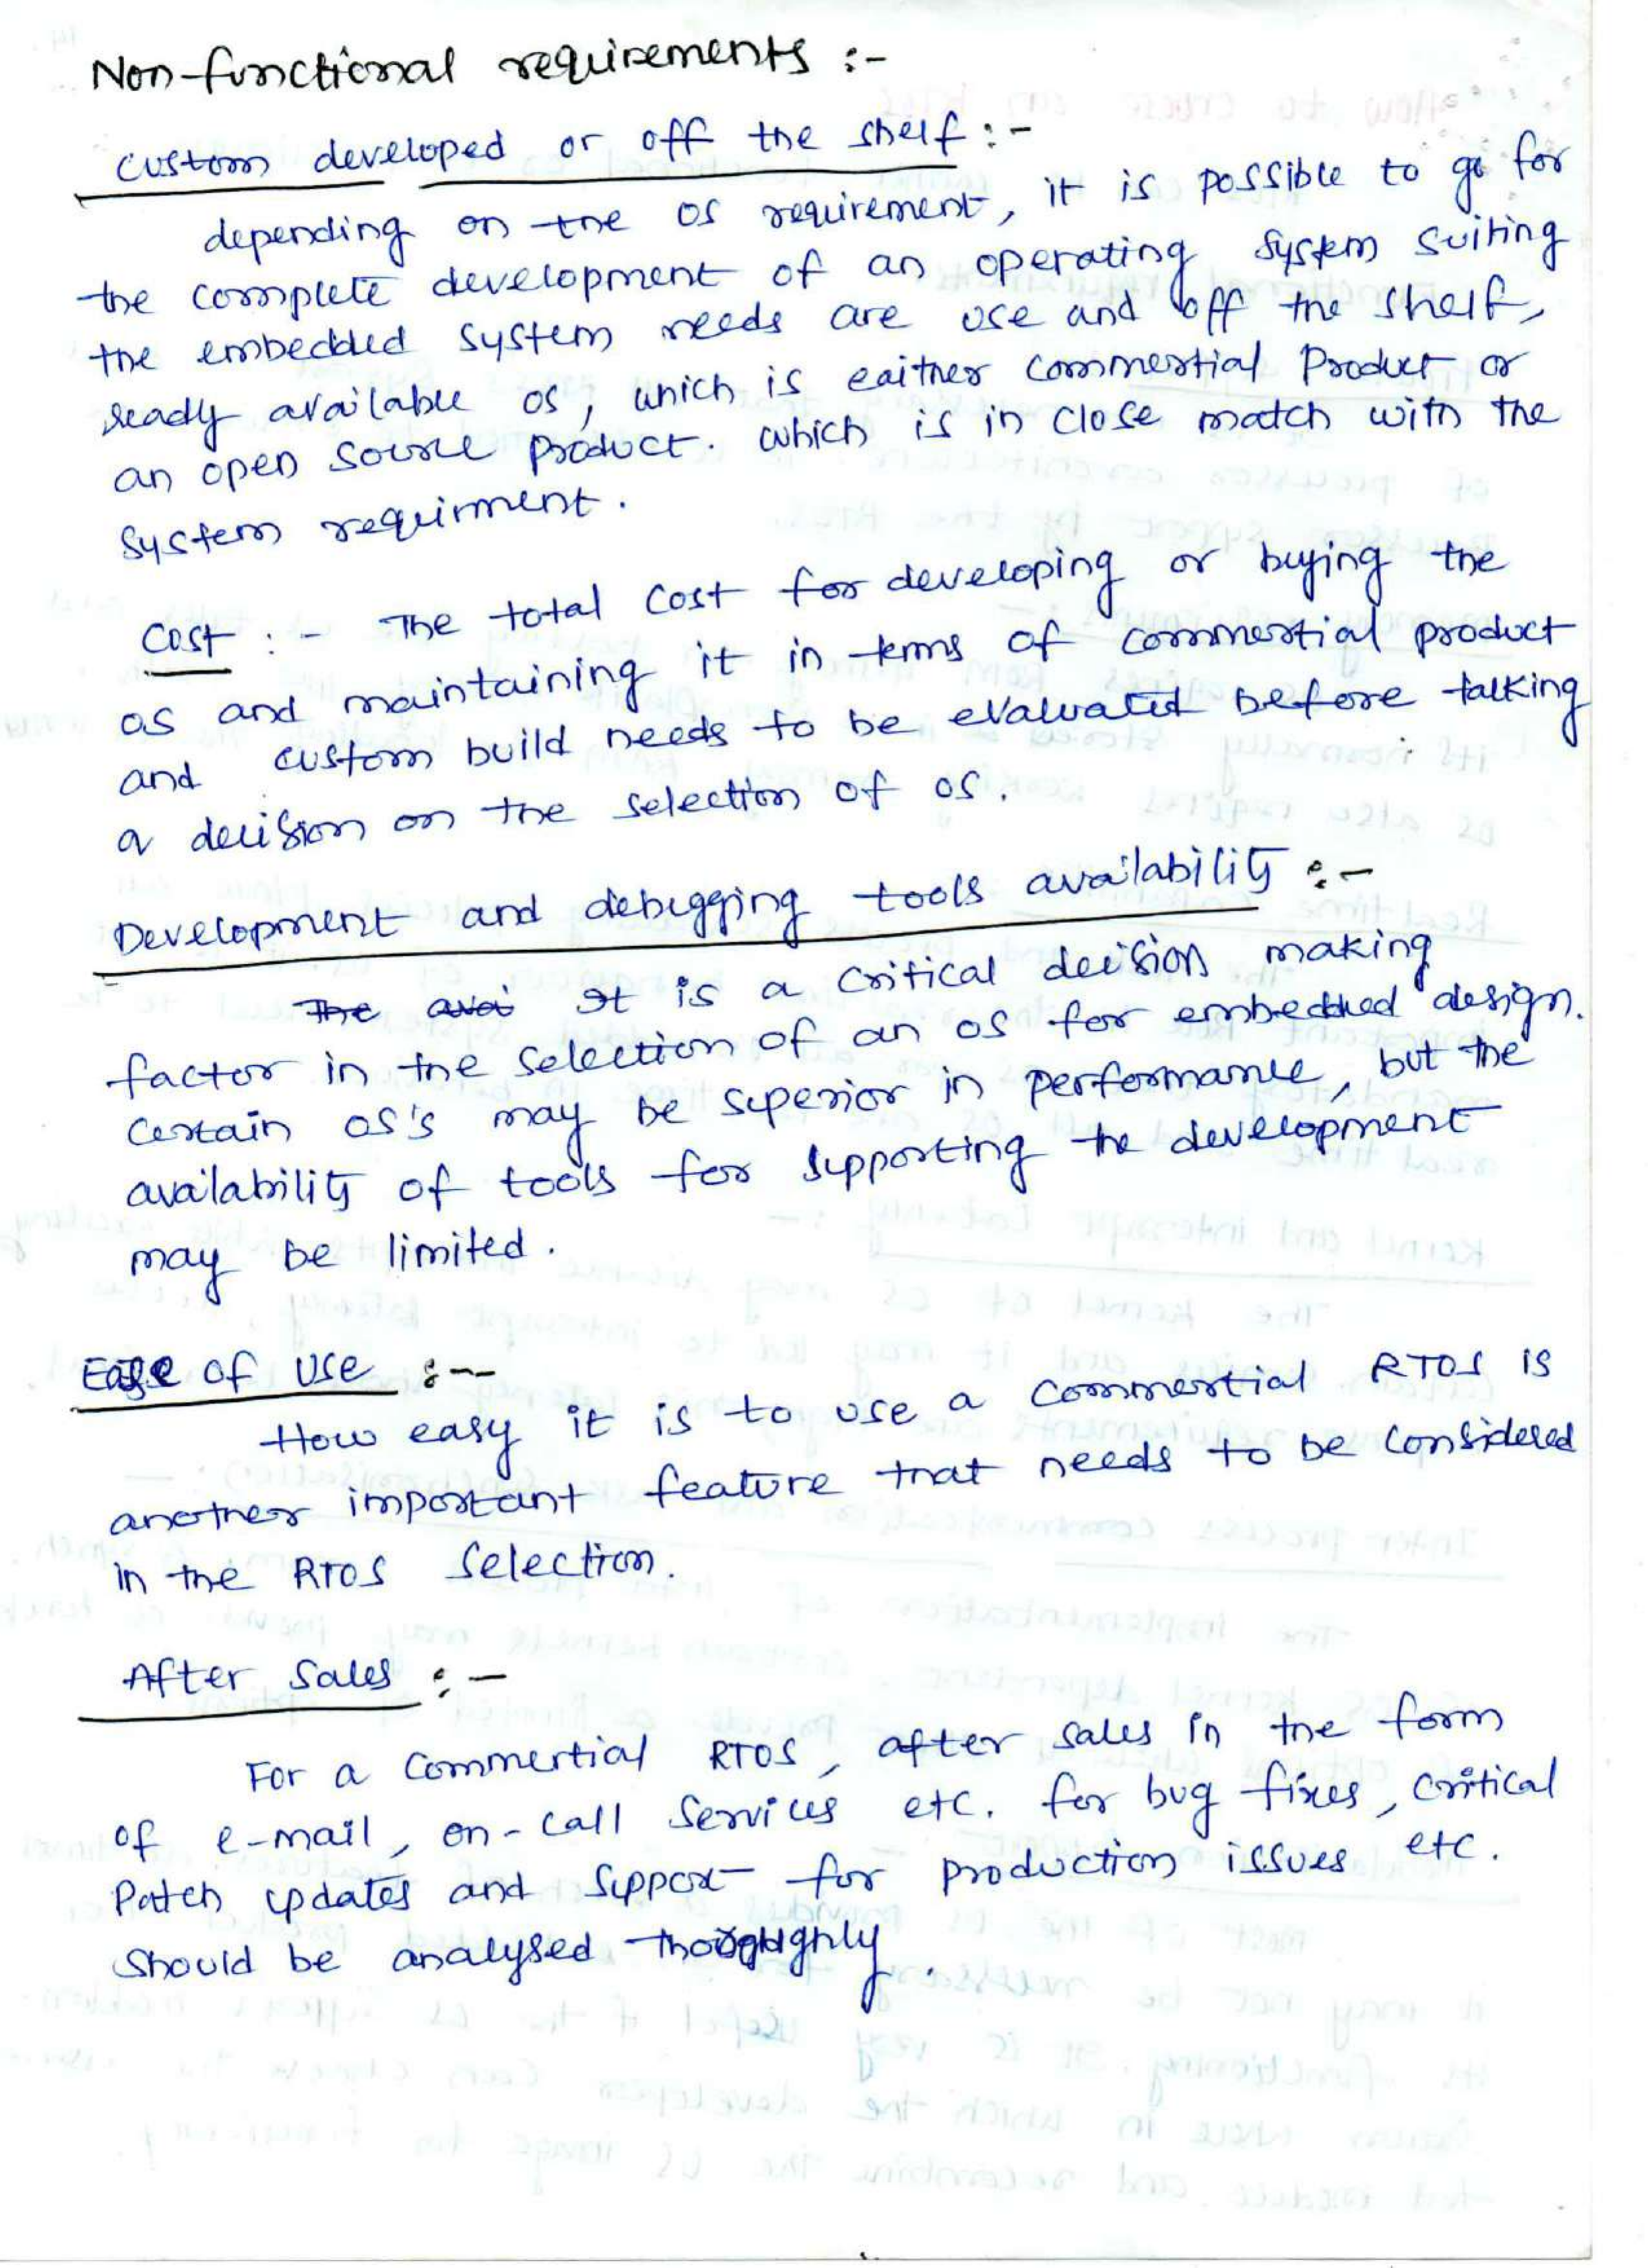 Non-functional requirements :-
Custom developed or off the shelf :-
depending on the OS requirement, it is possible to go for
the complete development of an operating system suiting
the embedded system needs are use and off the shelf,
ready available OS, which is eaither commertial Product or
an open source product. which is in close match with the
system requirment.
Cost :- The total cost for developing or buying the
OS and maintaining it in terms of commertial product
and custom build needs to be evaluated before talking
a decision on the selection of OS.
Development and debugging tools availability :-
The avai It is a critical decision making
factor in the selection of an OS for embedded design.
Certain OS's may be superior in performance, but the
availability of tools for supporting the development
may be limited.
Ease of use :--
How easy it is to use a commertial RTOS is
another important feature that needs to be considered
in the RTOS selection.
After sales :-
For a commertial RTOS, after sales in the form
of e-mail, on-call services etc. for bug fixes, critical
Patch updates and support for production issues etc.
should be analysed thoroughly.